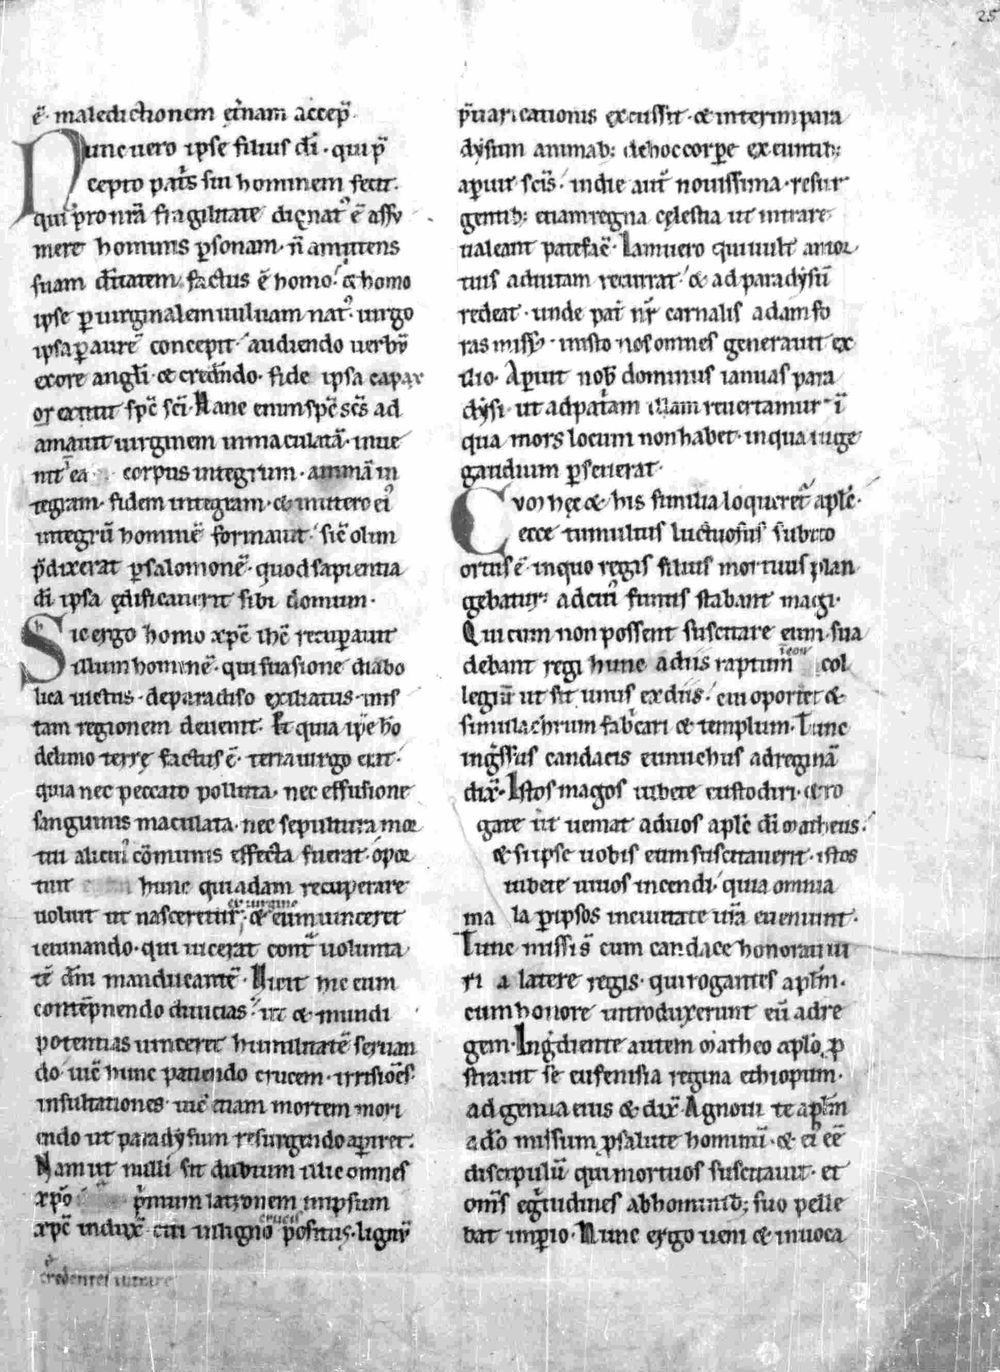 25
ē· maledictionem et̄nam accep̄·
Nunc uero ipse filius dī· qui p̄
cepto pat̄s sui hominem fecit·
qui pro nr̄a fragilitate dignat᾿ ē assu
mere hominis ꝑsonam· n̄ amittens
suam diuītatem, factus ē homo· & homo
ipse ꝑ uirginalem uuluam nat᾿· uirgo
ipsa ꝑ aurē concepit· audiendo uerbū
ex ore angl̄i· & credendo· fide ipsa capax
spc̄ sc̄i· Hanc enim spc̄ sc̄s ad
amauit uirginem inmaculatā· inue
nit ea corpus integrum· animā in
tegram· fidem integram· & in utero ei᾿
integrū hominē formauit· sic̄ olim
p̄dixerat ꝑ salomonē· quod sapientia
dī ipsa ędificauerit sibi domum·
Sic ergo homo xpc̄ ihc̄ recuꝑauit
illum hominē· qui suasione diabo
lica uictus· de paradiso exiliatus· in is
tam regionem deuenit· Et quia ipse ho
de limo terrę factus ē· terra uirgo erat·
quia nec peccato polluta· nec effusione
sanguinis maculata· nec sepultura mor
tui alicui᾿ cōmunis effecta fuerat· opor
tuit hunc qui adam recuperare
ex uirgine
uoluit ut nasceretur· & eum uinceret
ieiunando· qui uicerat cont̄ uolunta
tē dn̄i manducantē· Vicit hic eum
contēpnendo diuicias· ut & mundi
potentias uinceret humilitatē seruan
do· uic̄ hunc patiendo crucem· irrisiōes·
insultationes· uic̄ etiam mortem mori
endo ut paradysum resurgendo aꝑiret·
Nam ut nulli sit dubium illic omnes
xp̄o p̄mum latronem in ipsum
crucis
xpc̄ induxē· cui in ligno positus· lignū
credentes intrare
p̄uaricationis excussit· & interim para
dysum animab; de hoc corꝑe exeuntib;
aꝑuit scīs· in die aut̄ nouissima· resur
gentib; etiam regna cęlestia ut intrare
ualeant patefac̄· Iam uero qui uult a mor
tuis ad uitam recurrat· & ad paradysū
redeat· unde pat̄ nr̄ carnalis adam fo
ras miss᾿· in isto nos omnes generauit ex
ilio· Aꝑuit nob̄ dominus ianuas para
dysi· ut ad patriam illam reuertamur· ī
qua mors locum non habet· in qua iuge
gaudium ꝑseuerat·
Cvm hęc & his similia loqueret᾿ aplc̄·
ecce tumultus luctuosus subito
ortus ē· in quo regis filius mortuus plan
gebatur· ad cui᾿ funus stabant magi·
Qui cum non possent suscitare eum· sua
debant regi hunc a diis raptum col
legiū ut sit unus ex diis· cui oportet &
simulachrum fabricari & templum· Tunc
ingressus candacis eunuchus ad reginā
dix̄· Istos magos iubete custodiri· & ro
gate ut ueniat ad uos aplc̄ dī matheus·
& si ipse uobis eum suscitauerit· istos
iubete uiuos incendi· quia omnia
ma la ꝑ ipsos in ciuitate ur̄a eueniunt·
Tunc missis cum candace honorati ui
ri a latere regis· qui rogantes aplm̄·
cum honore introduxerunt eū ad re
gem· Ingrediente autem matheo aplō, p
strauit se eufenisia regina ethiopum·
ad genua eius & dix̄· Agnoui te aplm̄
a dō missum ꝑ salute hominū· & ei᾿ eē
discipulū qui mortuos suscitauit· et
oms̄ egritudines ab hominib; suo pelle
bat imꝑio· Nunc ergo ueni & inuoca